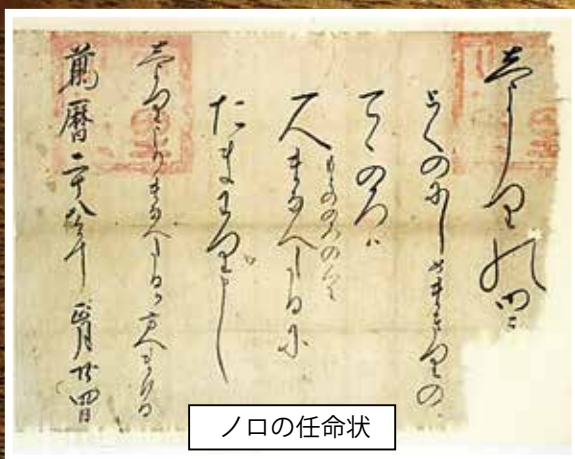 志よりの御ミ
とくのにしめまきりの
てゝのろハ
もとののろのくわ
一人まなへたるに
たまわり申候
志よりよりまなへたるか方へまいる
萬暦二十八年正月廿四日
ノロの任命状